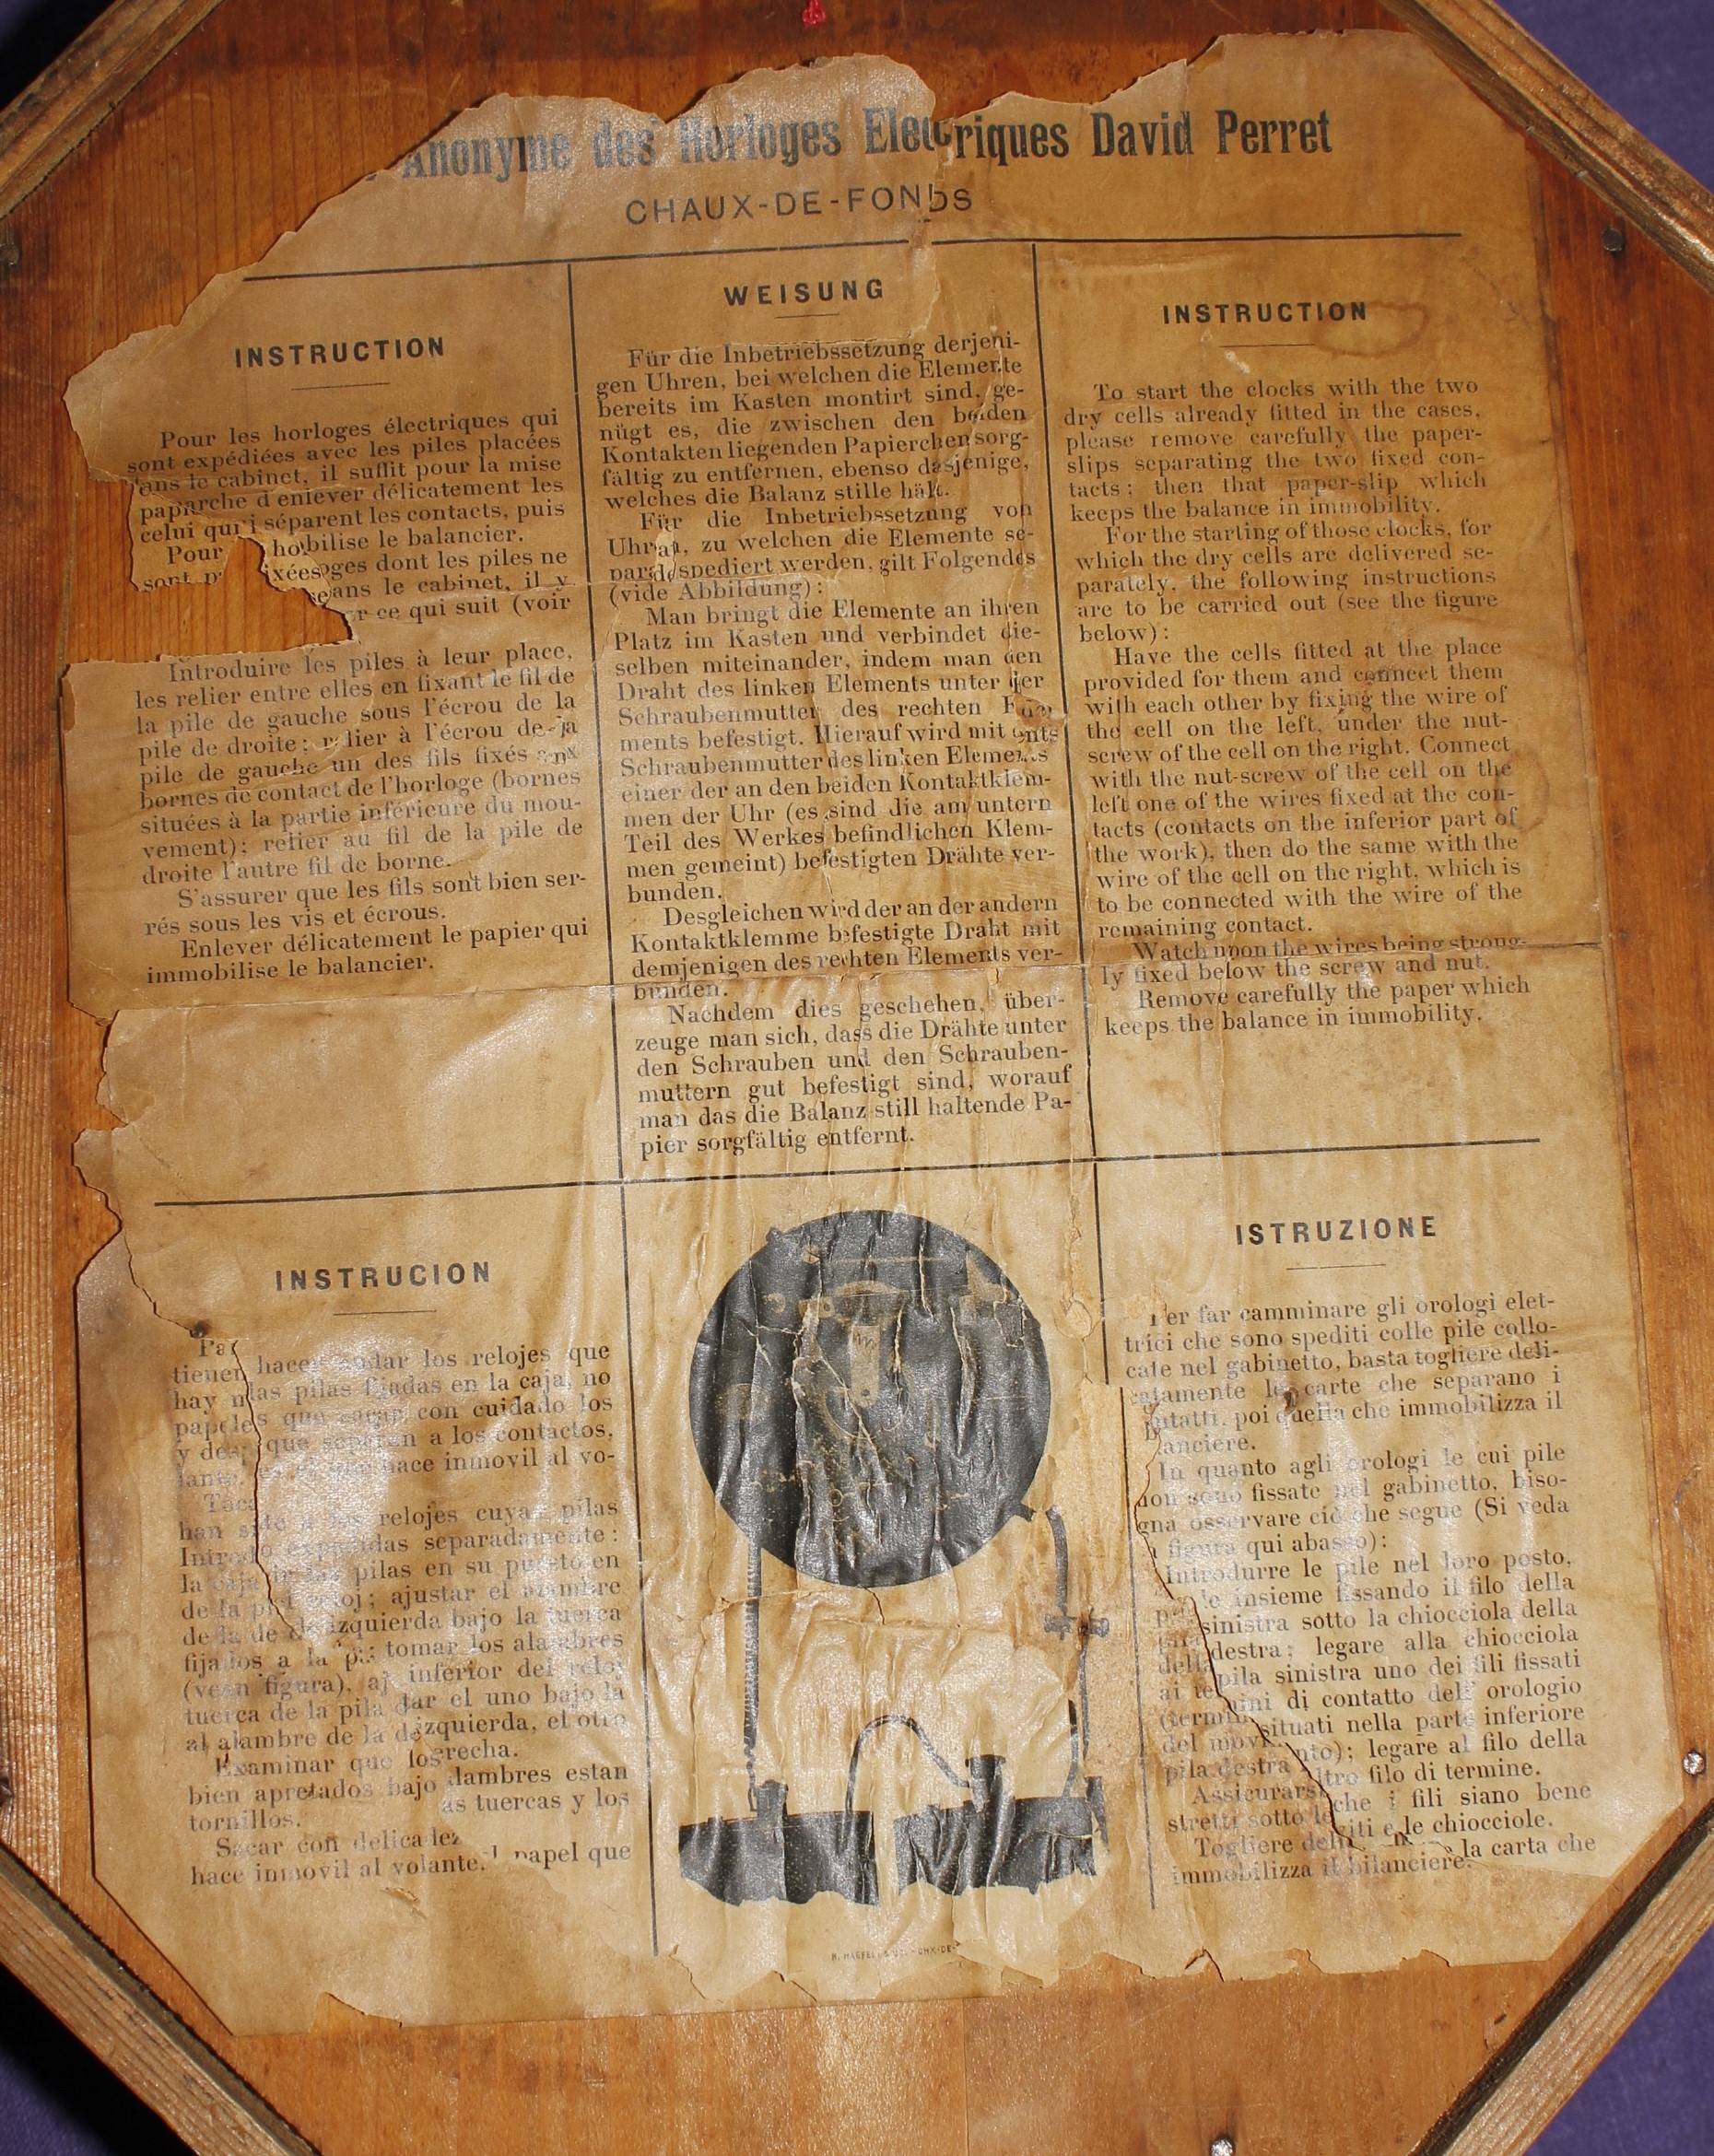 Anonyme des Horloges Electriques David Perret
CHAUX-DE-FONDS
INSTRUCTION
Pour les horloges électriques qui
sont expédiées avec les piles placées
le cabinet, il suffit pour la mise
d'enlever délicatement les
séparent les contacts, puis
celui qui
le balancier.
Pour
dont les piles ne
sont
le cabinet, il y
ce qui suit (voir
Introduire les piles à leur place,
les relier entre elles en fixant le fil de
la pile de gauche sous l'écrou de la
pile de droite; relier à l'écrou de la
pile de gauche un des fils fixés aux
bornes de contact de l'horloge (bornes
situées à la partie inférieure du mou-
vement); relier au fil de la pile de
droite l'autre fil de borne.
S'assurer que les fils sont bien ser-
rés sous les vis et écrous.
Enlever délicatement le papier qui
immobilise le balancier.
WEISUNG
Für die Inbetriebssetzung derjeni-
gen Uhren, bei welchen die Elemente
bereits im Kasten montirt sind, ge-
nügt es, die zwischen den beiden
Kontakten liegenden Papierchen sorg-
fältig zu entfernen, ebenso dasjenige,
welches die Balanz stille hält.
Für die Inbetriebssetzung von
zu welchen die Elemente se-
spediert werden, gilt Folgendes
(vide Abbildung):
Man bringt die Elemente an ihren
Platz im Kasten und verbindet die-
selben miteinander, indem man den
Draht des linken Elements unter der
Schraubenmutter des rechten
ments befestigt. Hierauf wird mit
Schraubenmutter des linken Elements
einer der an den beiden Kontaktklem-
men der Uhr (es sind die am untern
Teil des Werkes befindlichen Klem-
men gemeint) befestigten Drähte ver-
bunden.
Desgleichen wird der an der andern
Kontaktklemme befestigte Draht mit
demjenigen des rechten Elements ver-
bunden.
Nachdem dies geschehen, über-
zeuge man sich, dass die Drähte unter
den Schrauben und den Schrauben-
muttern gut befestigt sind, worauf
man das die Balanz still haltende Pa-
pier sorgfältig entfernt.
INSTRUCTION
To start the clocks with the two
dry cells already fitted in the cases,
please remove carefully the paper-
slips separating the two fixed con-
tacts; then that paper-slip which
keeps the balance in immobility.
For the starting of those clocks, for
which the dry cells are delivered se-
parately, the following instructions
are to be carried out (see the figure
below):
Have the cells fitted at the place
provided for them and connect them
with each other by fixing the wire of
the cell on the left, under the nut-
screw of the cell on the right. Connect
with the nut-screw of the cell on the
left one of the wires fixed at the con-
tacts (contacts on the inferior part of
the work), then do the same with the
wire of the cell on the right, which is
to be connected with the wire of the
remaining contact.
Watch upon the wires being strong-
ly fixed below the screw and nut.
Remove carefully the paper which
keeps the balance in immobility.
INSTRUCION
los relojes que
tienen las pilas fijadas en la caja, no
hay
con cuidado los
papeles que separan a los contactos,
hace inmovil al vo-
lante.
relojes cuyas pilas
han
separadamente:
pilas en su puesto en
la caja
ajustar el alambre
de la
izquierda bajo la tuerca
de la de
tomar los alambres
fijados a la
inferior del reloj
(vean figura),
el uno bajo la
tuerca de la pila
izquierda, el otro
al alambre de la
Examinar que los alambres estan
bien apretados bajo las tuercas y los
tornillos.
Sacar con delicadez
papel que
hace inmovil al volante.
ISTRUZIONE
Per far camminare gli orologi elet-
trici che sono spediti colle pile collo-
cate nel gabinetto, basta togliere deli-
carte che separano i
poi quella che immobilizza il
In quanto agli orologi le cui pile
non sono fissate nel gabinetto, biso-
gna osservare ciò che segue (Si veda
figura qui abasso):
Introdurre le pile nel loro posto,
insieme fissando il filo della
sinistra sotto la chiocciola della
destra; legare alla chiocciola
pila sinistra uno dei fili fissati
di contatto dell' orologio
situati nella parte inferiore
legare al filo della
pila destra
filo di termine.
Assicurarsi che i fili siano bene
stretti sotto
e le chiocciole.
Togliere
la carta che
immobilizza il bilanciere.